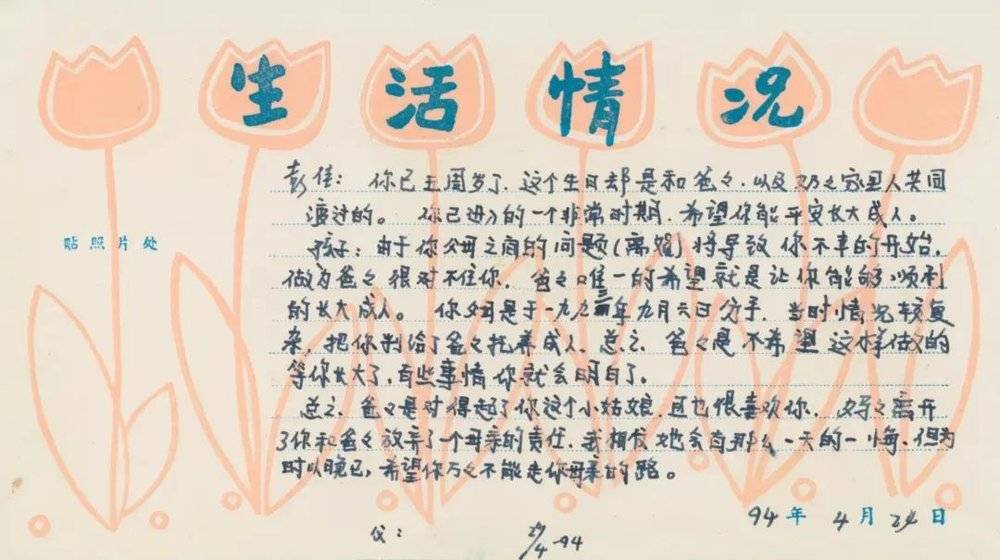 生活情况
贴照片处
彭佳：你已五周岁了，这个生日却是和爸々，以及奶々家里人共同
渡过的。你已进入的一个非常时期，希望你能平安长大成人。
孩子：由于你父母之间的问题（离婚）将导致你不幸的开始，
做为爸々很对不住你，爸々唯一的希望就是让你能够顺利
的长大成人。你父母是于一九九三年九月六日分手，当时情况较复
杂，把你判给了爸々抚养成人，总之，爸々是不希望这样做的
等你长大了，有些事情你就会明白了。
总之，爸々是对得起了你这个小姑娘，且也很喜欢你，妈々离开
了你和爸々放弃了一个母亲的责任，我相信她会有那么一天的一悔，但为
时以晚已，希望你万々不能走你母亲的路。
94年4月24日
父：